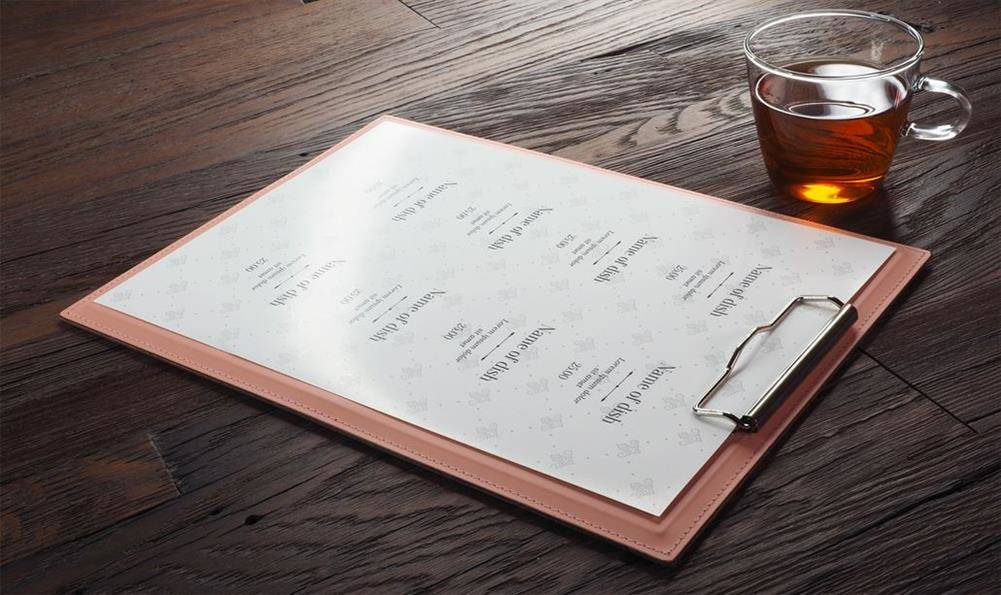 Name of dish
Lorem ipsum dolor
sit amet
25.00
Name of dish
Lorem ipsum dolor
sit amet
25.00
Name of dish
Lorem ipsum dolor
sit amet
25.00
Name of dish
Lorem ipsum dolor
sit amet
25.00
Name of dish
Lorem ipsum dolor
sit amet
25.00
Name of dish
Lorem ipsum dolor
sit amet
25.00
Name of dish
Lorem ipsum dolor
sit amet
Name of dish
Lorem ipsum dolor
sit amet
25.00